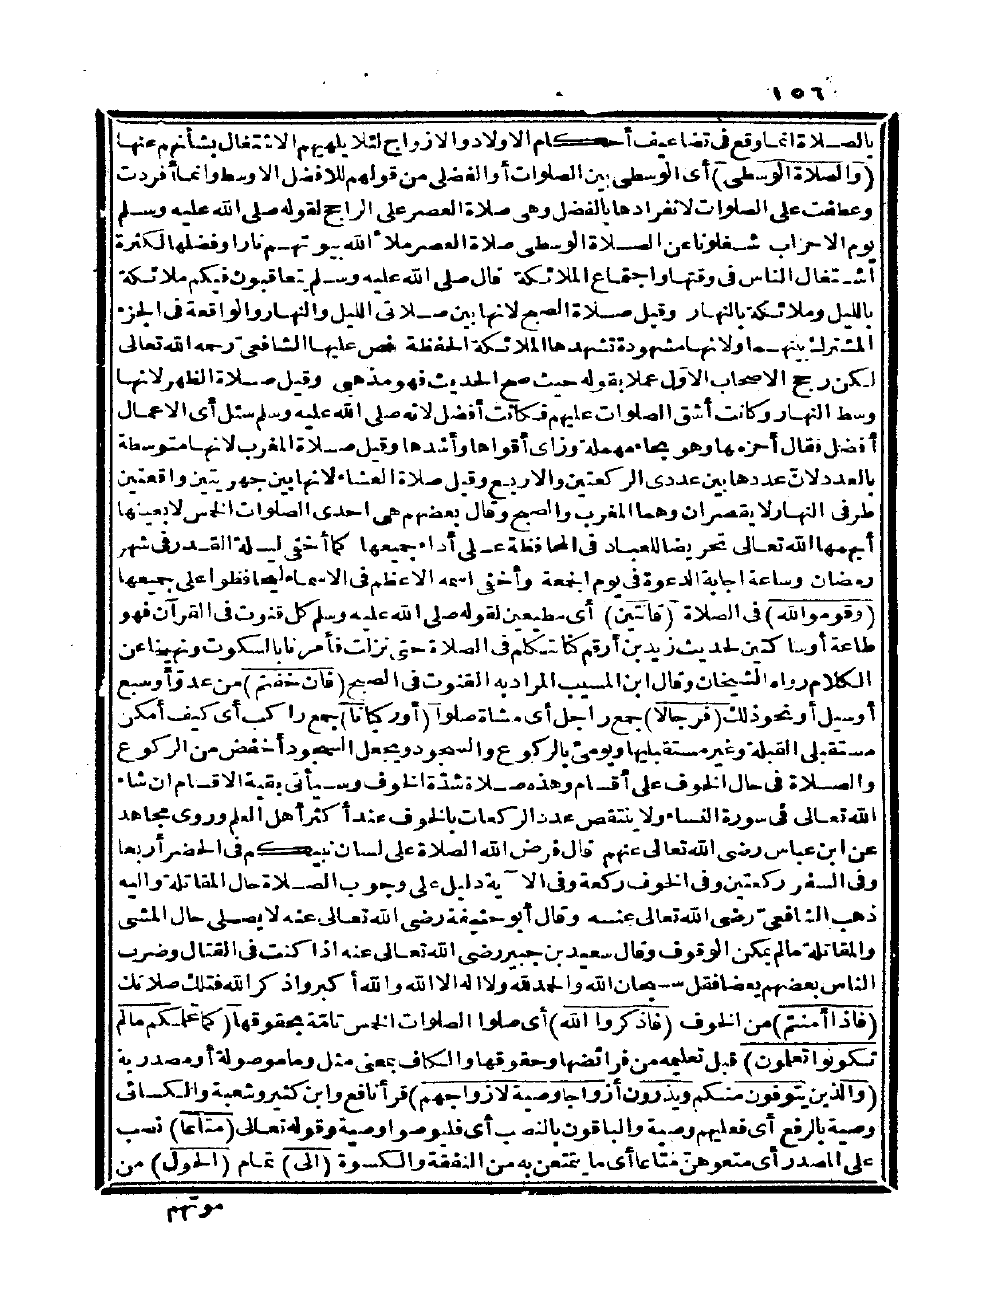 ١٥٦
بالصلاة انما وقع فى تضاعيف أحكام الاولاد والازواج لئلا يلهيهم الاشتغال بشأنهم عنها
(والصلاة الوسطى) أى الوسطى بين الصلوات أو الفضلى من قولهم للافضل الاوسط وانما أفردت
وعطفت على الصلوات لانفرادها بالفضل وهى صلاة العصر على الراجح لقوله صلى الله عليه وسلم
يوم الاحزاب شغلونا عن الصلاة الوسطى صلاة العصر ملأ الله بيوتهم نارا وفضلها لكثرة
اشتغال الناس فى وقتها واجتماع الملائكة قال صلى الله عليه وسلم يتعاقبون فيكم ملائكة
بالليل وملائكة بالنهار وقيل صلاة الصبح لانها بين صلاتى الليل والنهار والواقعة فى الجزء
المشترك بينهما ولانها مشهودة تشهدها الملائكة الحفظة نص عليها الشافعى رحمه الله تعالى
لكن رجح الاصحاب الاوّل عملا بقوله حيث صح الحديث فهو مذهبى وقيل صلاة الظهر لانها
وسط النهار وكانت أشق الصلوات عليهم فكانت أفضل لانه صلى الله عليه وسلم سئل أى الاعمال
أفضل فقال أحزمها وهو بحاء مهملة وزاى أقواها وأشدها وقيل صلاة المغرب لانها متوسطة
بالعدد لانّ عددها بين عددى الركعتين والاربع وقيل صلاة العشاء لانها بين جهريتين واقعتين
طرفى النهار لا يقصران وهما المغرب والصبح وقال بعضهم هى احدى الصلوات الخمس لا بعينها
أبهمها الله تعالى تحريضا للعباد فى المحافظة على أداء جميعها كما أخفى ليلة القدر فى شهر
رمضان وساعة اجابة الدعوة فى يوم الجمعة وأخفى اسمه الاعظم فى الاسماء ليحافظوا على جميعها
(وقوموا لله) فى الصلاة (قانتين) أى مطيعين لقوله صلى الله عليه وسلم كل قنوت فى القرآن فهو
طاعة أو ساكتين لحديث زيد بن أرقم كنا نتكلم فى الصلاة حتى نزلت فأمرنا بالسكوت ونهينا عن
الكلام رواه الشيخان وقال ابن المسيب المراد به القنوت فى الصبح (فان خفتم) من عدوّ أو سبع
أو سيل أو نحو ذلك (فرجالا) جمع راجل أى مشاة صلوا (أو ركبانا) جمع راكب أى كيف أمكن
مستقبلى القبلة وغير مستقبليها ويومئ بالركوع والسجود ويجعل السجود أخفض من الركوع
والصلاة فى حال الخوف على أقسام وهذه صلاة شدّة الخوف وسيأتى بقية الاقسام ان شاء
الله تعالى فى سورة النساء ولا ينتقص عدد الركعات بالخوف عند أكثر أهل العلم وروى مجاهد
عن ابن عباس رضى الله تعالى عنهم قال فرض الله الصلاة على لسان نبيكم فى الحضر أربعا
وفى السفر ركعتين وفى الخوف ركعة وفى الآية دليل على وجوب الصلاة حال المقاتلة واليه
ذهب الشافعىّ رضى الله تعالى عنه وقال أبو حنيفة رضى الله تعالى عنه لا يصلى حال المشى
والمقاتلة ما لم يمكن الوقوف وقال سعيد بن جبير رضى الله تعالى عنه اذا كنت فى القتال وضرب
الناس بعضهم بعضا فقل سبحان الله والحمد لله ولا اله الا الله والله أكبر واذكر الله فتلك صلاتك
(فاذا أمنتم) من الخوف (فاذكروا الله) أى صلوا الصلوات الخمس تامّة بحقوقها (كما علمكم ما لم
تكونوا تعلمون) قبل تعليمه من فرائضها وحقوقها والكاف بمعنى مثل وما موصولة أو مصدرية
(والذين يتوفون منكم ويذرون أزواجا وصية لازواجهم) قرأ نافع وابن كثير وشعبة والكسائى
وصية بالرفع أى فعليهم وصية والباقون بالنصب أى فليوصوا وصية وقوله تعالى (متاعا) نصب
على المصدر أى متعوهنّ متاعا أى ما يتمتعن به من النفقة والكسوة (الى) تمام (الحول) من
موتهم